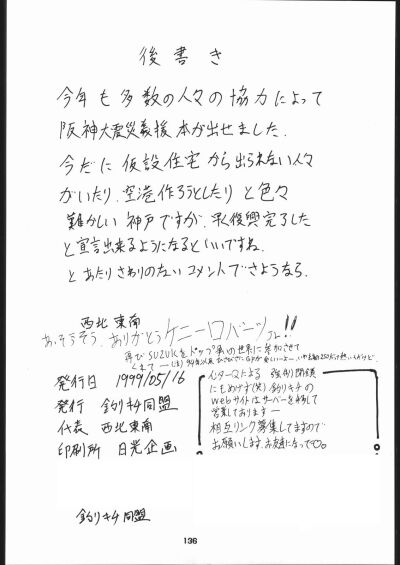 後書き
今年も多数の人々の協力によって
阪神大震災義援本が出せました.
今だに仮設住宅から出られない人々
がいたり、空港作ろうとしたりと色々
難かしい神戸ですが、早く復興完了した
と宣言出来るようになるといいですね.
とあたりさわりのないコメントでさようなら.
西北東南
あ、そうそう、ありがとうケニーロバーツJr!!
再びSUZUKIをトップ争いの世界に参加させて
くれて
発行日 1999/05/16
発行 釣りキチ同盟
代表 西北東南
印刷所 日光企画
インターQによる 強制閉鎖
にもめげず(笑)釣りキチの
Webサイトはサーバーを移して
営業しております—
相互リンク募集してますので
お願いします.お友達になって♡。
釣りキチ同盟
136